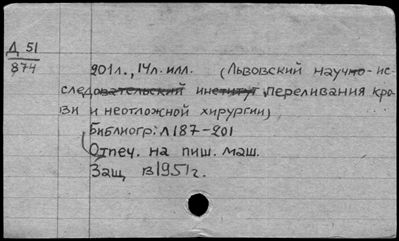 Д 51
874
201л., 14л. илл. (Львовский научно-ис-
следовательский институт переливания кро-
ви и неотложной хирургии)
Библиогр: л187-201
Отпеч. на пиш. маш.
Защ. в 1951г.